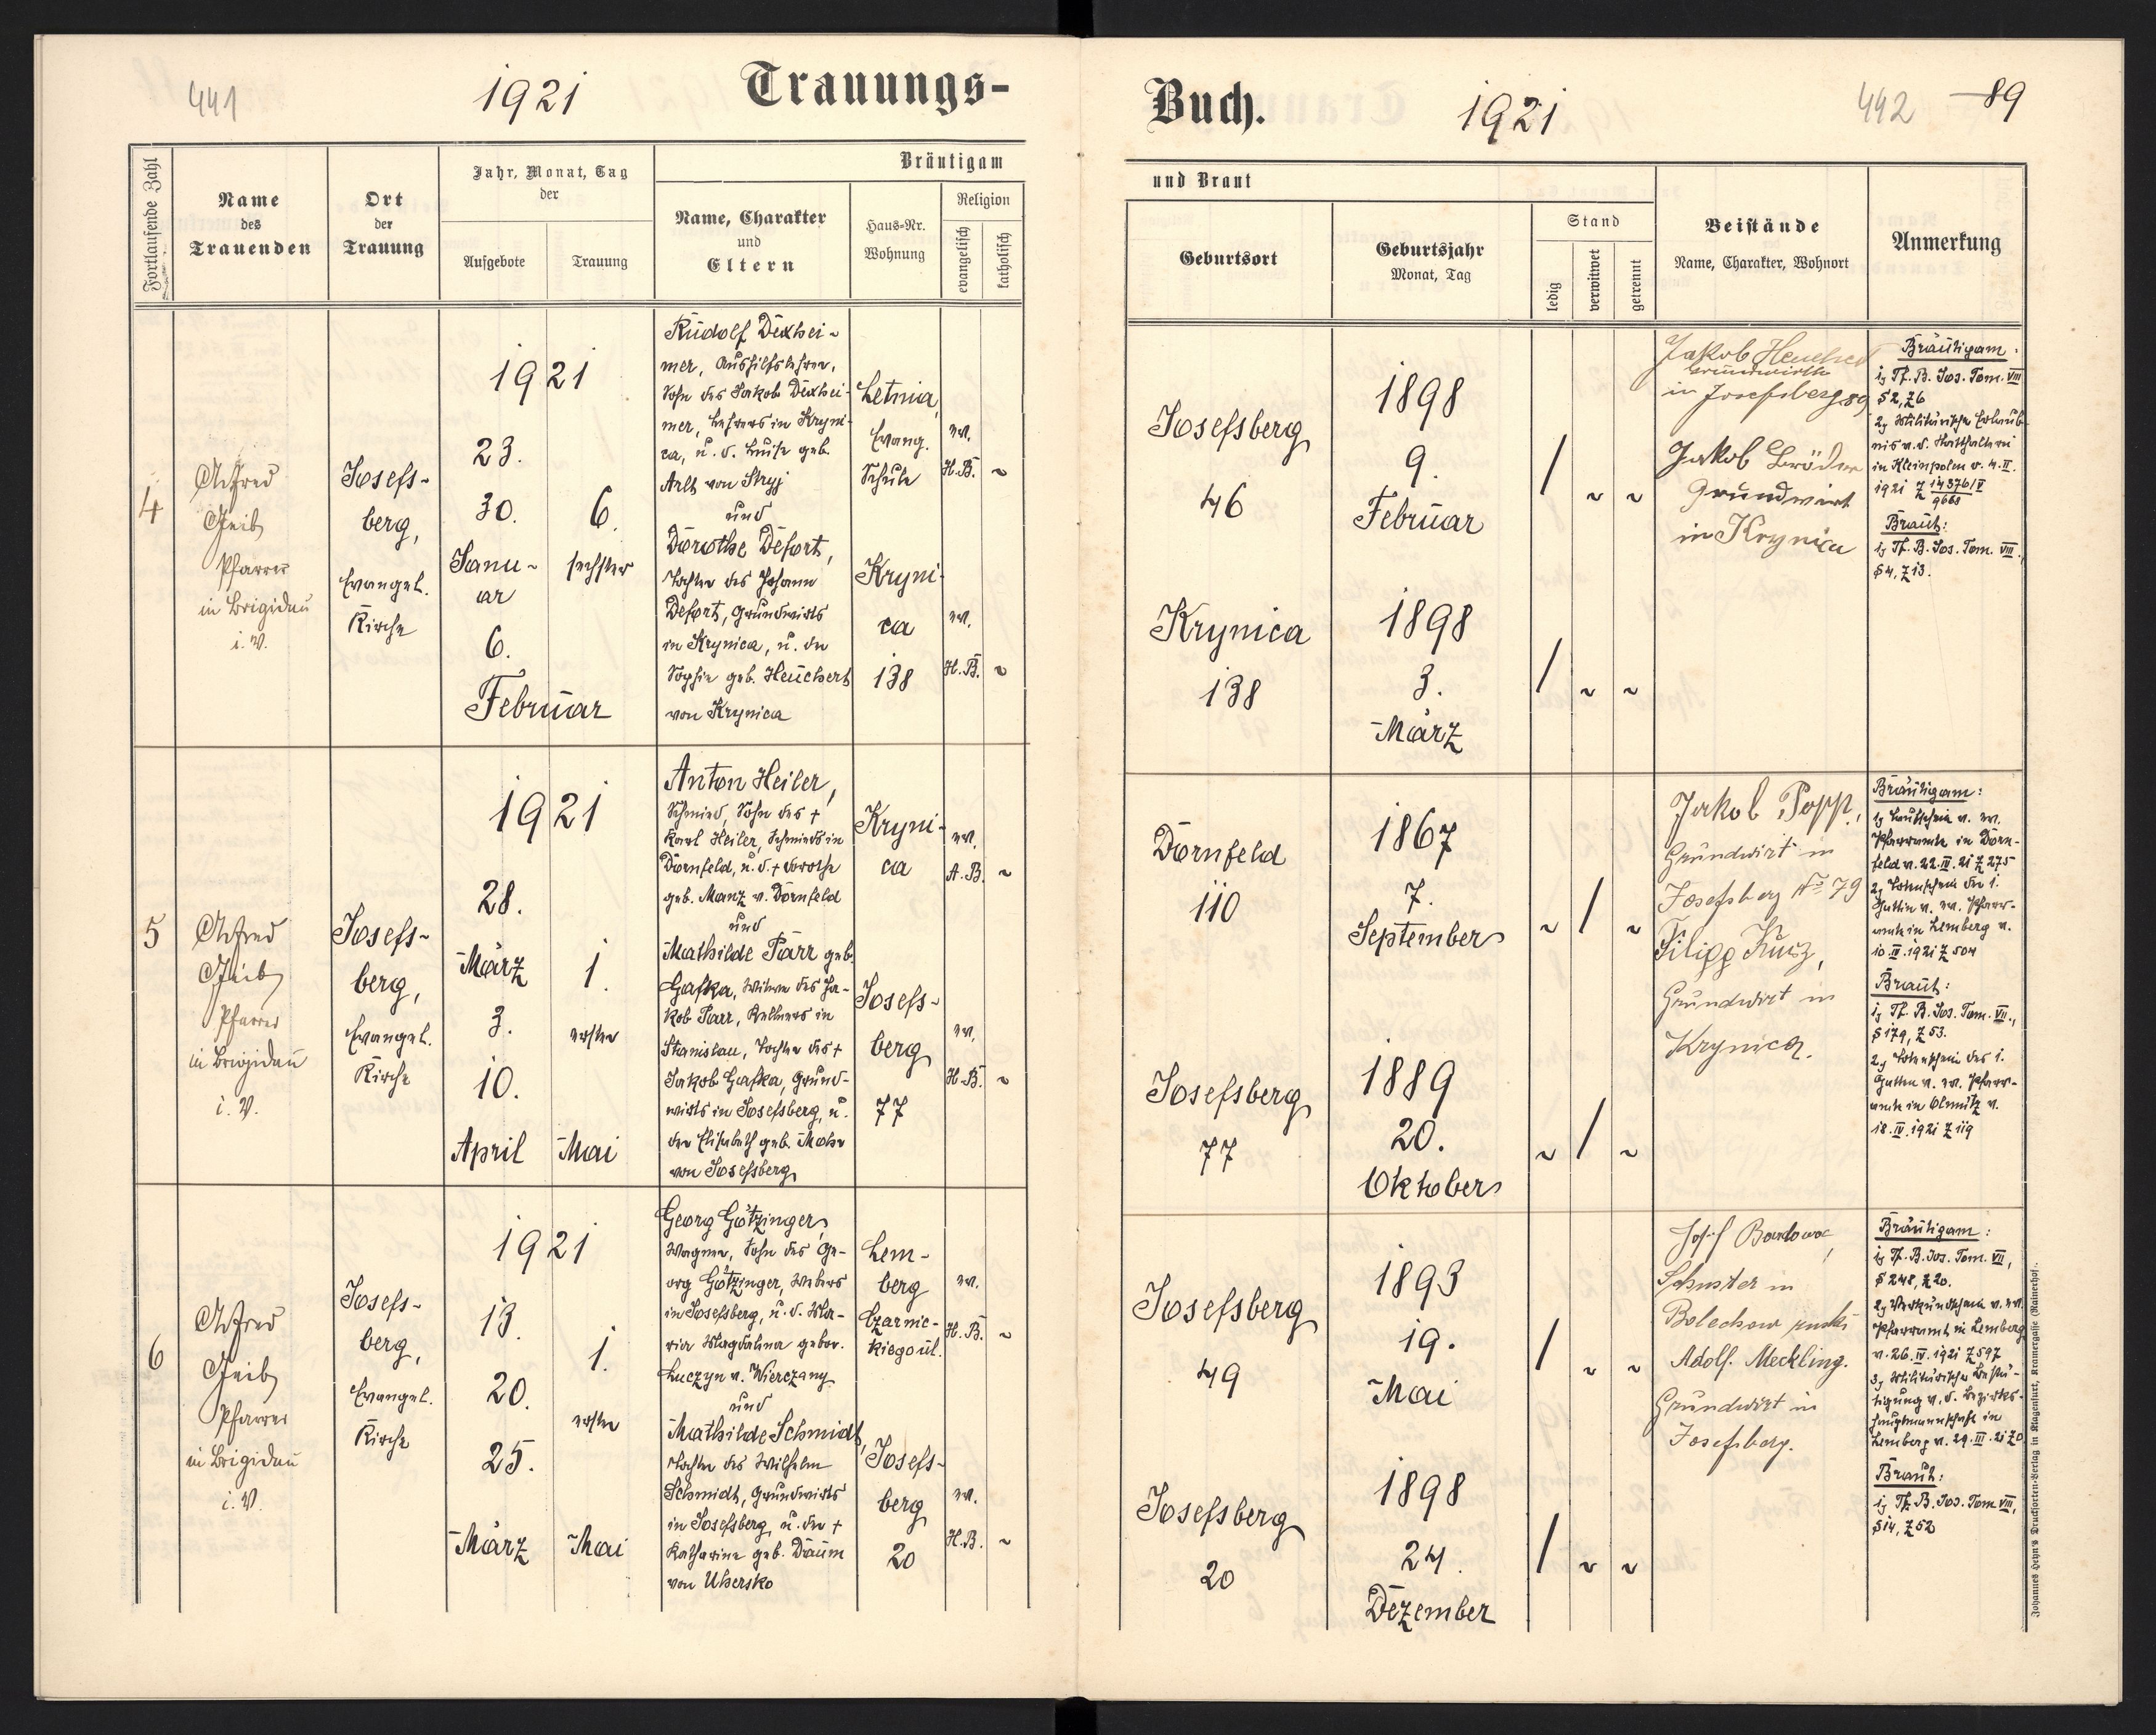 441
1921
Trauungs-
Fortlaufende Zahl
Name
des
Trauenden
Ort
der
Trauung
Jahr, Monat, Tag
der
Aufgebote
Trauung
Bräutigam
Name, Charakter
und
Eltern
Haus-Nr.
Wohnung
Religion
evangelisch
katholisch
4
Alfred
Pfarrer
in Brigidau
i. V.
Josefs-
berg,
Evangel.
Kirche
1921
23.
30.
Janu-
ar
6.
Februar
6.
sechster
Rudolf Dexhei-
mer, Aushilfslehrer,
Sohn des Jakob Dexhei-
mer, Lehrers in Kryni-
ca, u. d. Luise geb.
Arlt von Stryj
und
Dorothe Defort,
Tochter des Johann
Defort, Grundwirts
in Krynica, u. der
Sophie geb. Heuchert
von Krynica
Letnia,
Evang.
Schule
Kryni-
ca
138
ev.
H.B.
ev.
H.B.
5
Alfred
Pfarrer
in Brigidau
i. V.
Josefs-
berg,
Evangel.
Kirche
1921
28.
März
3.
10.
April
1.
erster
Mai
Anton Heiler,
Schmied, Sohn des +
Karl Heiler, Schmieds in
Dornfeld, u. d. + Dorothe
geb. Manz v. Dornfeld
und
Mathilde Parr geb.
Gafka, Witwe des Ja-
kob Parr, Kellners in
Stanislau, Tochter des +
Jakob Gafka, Grund-
wirts in Josefsberg, u.
der Elisabeth geb. Mohr
von Josefsberg
Kryni-
ca
Josefs-
berg
77
ev.
A.B.
ev.
H.B.
6
Alfred
Pfarrer
in Brigidau
i. V.
Josefs-
berg,
Evangel.
Kirche
1921
13.
20.
25.
März
1.
erster
Mai
Georg Götzinger,
Wagner, Sohn des Ge-
org Götzinger, Webers
in Josefsberg, u. d. Ma-
ria Magdalena gebor.
Luczyn v. Wierczany
und
Mathilde Schmidt,
Tochter des Wilhelm
Schmidt, Grundwirts
in Josefsberg, u. der +
Katharine geb. Daum
von Uhersko
Lem-
berg
Czarnie-
kiego ul.
Josefs-
berg
20
ev.
H.B.
ev.
H.B.
Buch.
1921
442
89
und Braut
Geburtsort
Geburtsjahr
Monat, Tag
Stand
ledig
verwitwet
getrennt
Beistände
Name, Charakter, Wohnort
Anmerkung
Josefsberg
46
1898
9.
Februar
Krynica
138
1898
3.
März
Jakob
Grundwirth
in Josefsberg 89
Jakob Bröder
Grundwirt
in Krynica
Bräutigam:
1, Tf. B. Jos. Tom. VIII
§ 2, Z 6
2, Militärische Erlaub-
nis v. d. Statthalterei
in Kleinpolen v. 4. II.
1921 Z 14376/V
9668
Braut:
1, Tf. B. Jos. Tom. VIII.,
§ 4, Z 13.
Dornfeld
110
1867
7.
September
Josefsberg
77
1889
20.
Oktober
Jakob Popp,
Grundwirt in
Josefsberg No 79
Filipp Kusz,
Grundwirt in
Krynica.
Bräutigam:
1, Taufschein v. ev.
Pfarramte in Dorn-
feld v. 22. IV. 21 Z 275
2, Totenschein der 1.
Gattin v. ev. Pfarr-
amte in Lemberg v.
10. IV. 1921 Z 504
Braut:
1, Tf. B. Jos. Tom. VII.,
§ 179, Z 53.
2, Totenschein des 1.
Gatten v. ev. Pfarr-
amte in Olmütz v.
18. IV. 1921 Z 119
Josefsberg
49
1893
19.
Mai
Josefsberg
20
1898
24.
Dezember
Josef
Schuster in
Bolechow
Adolf Meckling.
Grundwirt in
Josefsberg.
Bräutigam:
1, Tf. B. Jos. Tom. VII,
§ 248, Z 20.
2, Verkündschein v. ev.
Pfarramt in Lemberg
v. 26. IV. 1921 Z 597
3, Militärische Bestä-
tigung v. d. Bezirks-
hauptmannschaft in
Lemberg v. 29. III. 21 Z 0
Braut:
1, Tf. B. Jos. Tom. VIII,
§ 14, Z 52
Johannes Heyn's Drucksorten-Verlag in Klagenfurt, Kramergasse (Rainerhof).